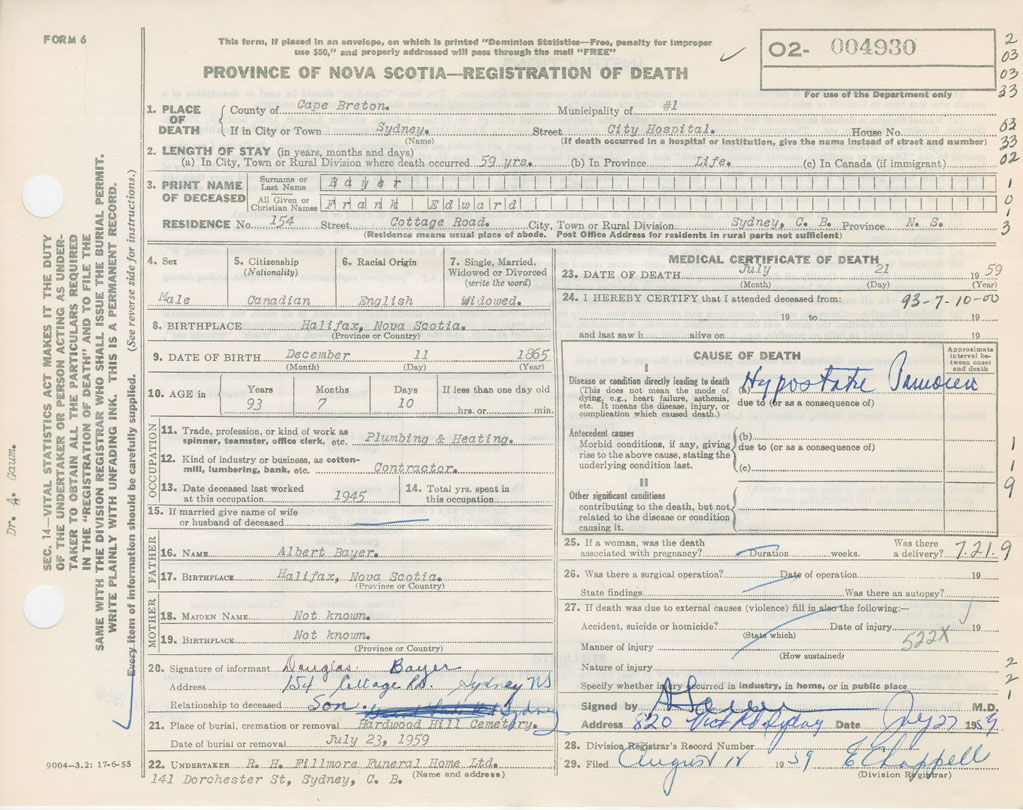 FORM 6
This form, if placed in an envelope, on which is printed "Dominion Statistics—Free, penalty for improper
use $50," and properly addressed will pass through the mail "FREE"
PROVINCE OF NOVA SCOTIA—REGISTRATION OF DEATH
02- 004930
For use of the Department only
2
03
03
33
03
33
02
1
0
1
3
1. PLACE OF DEATH
County of Cape Breton. Municipality of #1
If in City or Town Sydney. Street City Hospital. House No.
(Name) (If death occurred in a hospital or institution, give the name instead of street and number)
2. LENGTH OF STAY (in years, months and days)
(a) In City, Town or Rural Division where death occurred 59 yrs. (b) In Province Life. (c) In Canada (if immigrant)
3. PRINT NAME OF DECEASED
Surname or Last Name Bayer
All Given or Christian Names Frank Edward
RESIDENCE No. 154 Street Cottage Road. City, Town or Rural Division Sydney, C. B. Province N. S.
(Residence means usual place of abode. Post Office Address for residents in rural parts not sufficient)
4. Sex
Male
5. Citizenship
(Nationality)
Canadian
6. Racial Origin
English
7. Single, Married,
Widowed or Divorced
(write the word)
Widowed.
8. BIRTHPLACE Halifax, Nova Scotia.
(Province or Country)
9. DATE OF BIRTH December 11 1865
(Month) (Day) (Year)
10. AGE in
Years Months Days If less than one day old
93 7 10 hrs. or min.
OCCUPATION
11. Trade, profession, or kind of work as
spinner, teamster, office clerk, etc. Plumbing & Heating.
12. Kind of industry or business, as cotton-
mill, lumbering, bank, etc. Contractor.
13. Date deceased last worked
at this occupation 1945
14. Total yrs. spent in
this occupation
15. If married give name of wife
or husband of deceased
FATHER
16. NAME Albert Bayer.
17. BIRTHPLACE Halifax, Nova Scotia.
(Province or Country)
MOTHER
18. MAIDEN NAME Not known.
19. BIRTHPLACE Not known.
(Province or Country)
20. Signature of informant Douglas Bayer
Address 154 Cottage Rd. Sydney NS
Relationship to deceased Son. Sydney
21. Place of burial, cremation or removal Hardwood Hill Cemetery.
Date of burial or removal July 23, 1959
22. UNDERTAKER R. H. Fillmore Funeral Home Ltd.
141 Dorchester St, Sydney, C. B. (Name and address)
MEDICAL CERTIFICATE OF DEATH
23. DATE OF DEATH July 21 1959
(Month) (Day) (Year)
24. I HEREBY CERTIFY that I attended deceased from: 93-7-10-00
19 to 19
and last saw h alive on 19
CAUSE OF DEATH
Approximate
interval be-
tween onset
and death
I
Disease or condition directly leading to death
(This does not mean the mode of
dying, e.g., heart failure, asthenia,
etc. It means the disease, injury, or
complication which caused death.)
(a)
due to (or as a consequence of)
Antecedent causes
Morbid conditions, if any, giving
rise to the above cause, stating the
underlying condition last.
(b)
due to (or as a consequence of)
(c)
II
Other significant conditions
contributing to the death, but not
related to the disease or condition
causing it.
1
1
9
25. If a woman, was the death
associated with pregnancy? Duration weeks. Was there
a delivery? 7.21.9
26. Was there a surgical operation? Date of operation 19
State findings Was there an autopsy?
27. If death was due to external causes (violence) fill in also the following:—
Accident, suicide or homicide? Date of injury 19
(State which)
Manner of injury 522X
(How sustained)
Nature of injury
Specify whether injury occurred in industry, in home, or in public place
2
2
1
Signed by M.D.
Address 820 Vict Rd Sydney Date July 27 1959
28. Division Registrar's Record Number
29. Filed August 12 1959 E Chappell
(Division Registrar)
9004—3.2: 17-6-55
SEC. 14—VITAL STATISTICS ACT MAKES IT THE DUTY
OF THE UNDERTAKER OR PERSON ACTING AS UNDER-
TAKER TO OBTAIN ALL THE PARTICULARS REQUIRED
IN THE "REGISTRATION OF DEATH" AND TO FILE THE
SAME WITH THE DIVISION REGISTRAR WHO SHALL ISSUE THE BURIAL PERMIT.
WRITE PLAINLY WITH UNFADING INK. THIS IS A PERMANENT RECORD.
Every item of information should be carefully supplied. (See reverse side for instructions.)
Dr. A. Gaum.